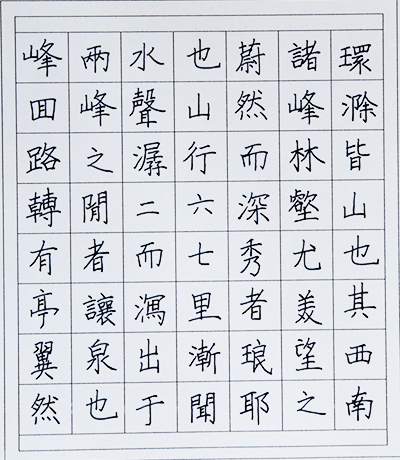 環滁皆山也其西南
諸峰林壑尤美望之
蔚然而深秀者琅耶
也山行六七里漸聞
水聲潺二而瀉出于
兩峰之閒者讓泉也
峰囬路轉有亭翼然